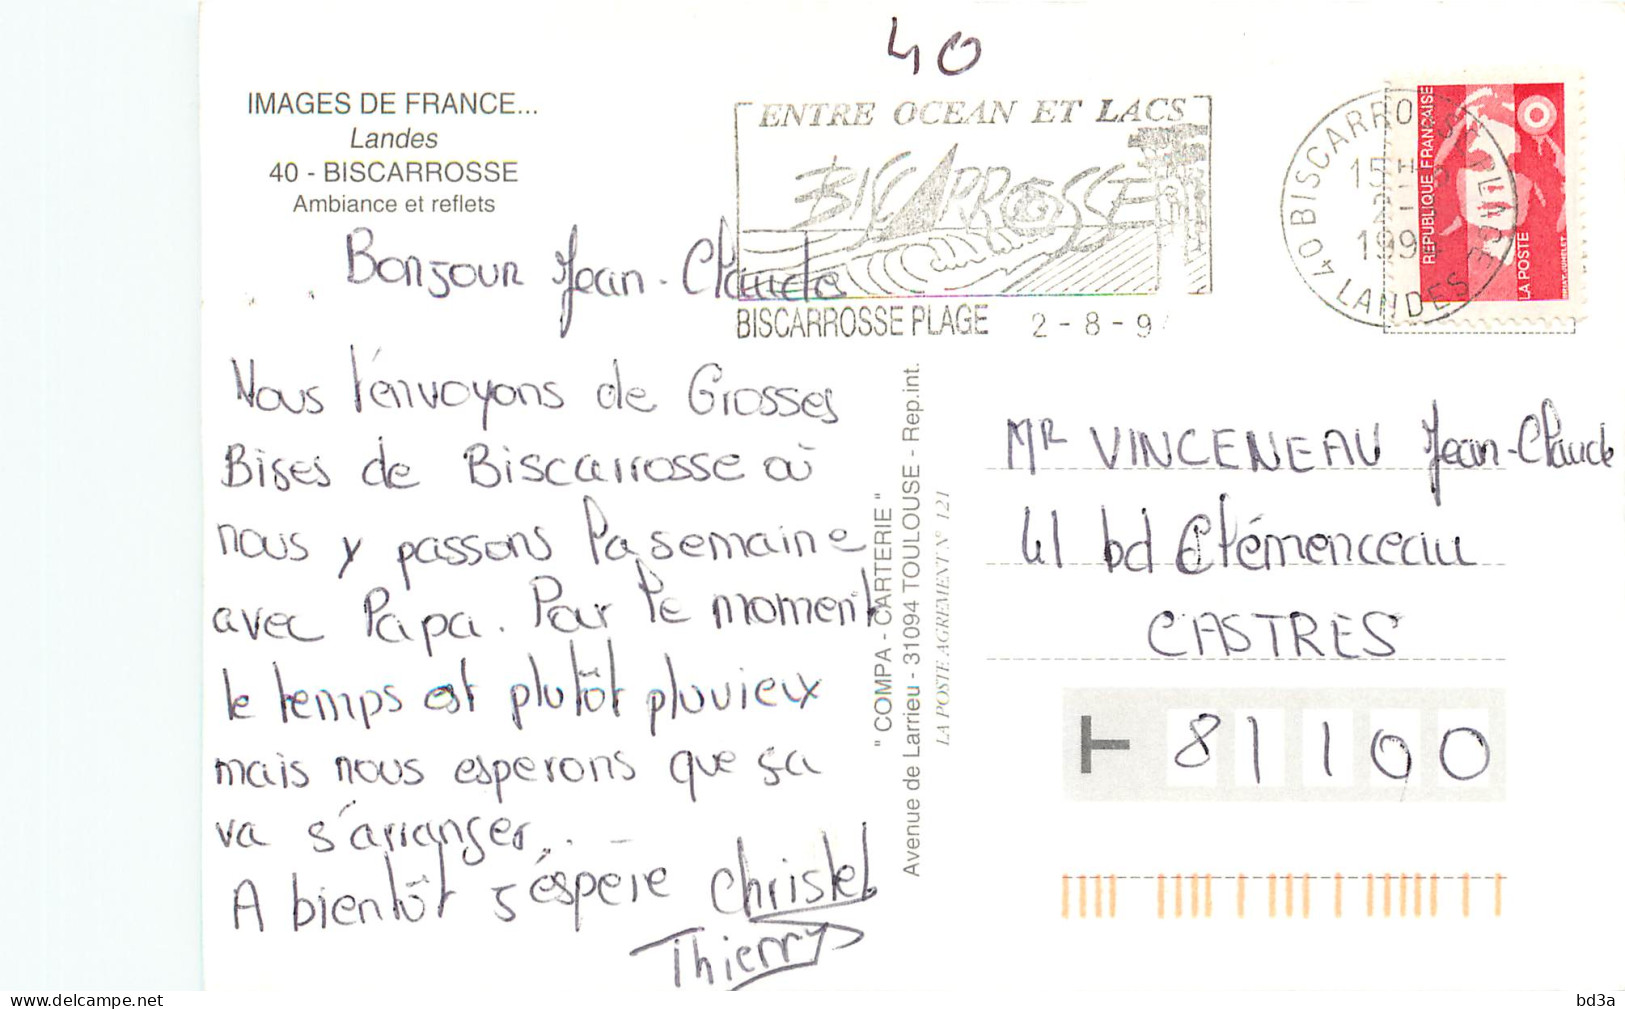 40
IMAGES DE FRANCE...
Landes
40 - BISCARROSSE
Ambiance et reflets
ENTRE OCEAN ET LACS
BISCARROSSE
BISCARROSSE PLAGE 2 - 8 - 9
40 BISCARROSSE
15H
2 - 8
199
LANDES
REPUBLIQUE FRANÇAISE
LA POSTE
Bonjour Jean-Claude
Nous t'envoyons de Grosses
Bises de Biscarrosse où
nous y passons la semaine
avec Papa. Pour le moment
le temps est plutôt pluvieux
mais nous esperons que sa
va s'arranger...
A bientôt j'éspère Christel
Thierry
" COMPA - CARTERIE "
Avenue de Larrieu - 31094 TOULOUSE - Rep.int.
LA POSTE AGREMENT N° 121
Mr VINCENEAU Jean-Claude
41 bd Clémenceau
CASTRES
81100
delcampe.net
bd3a